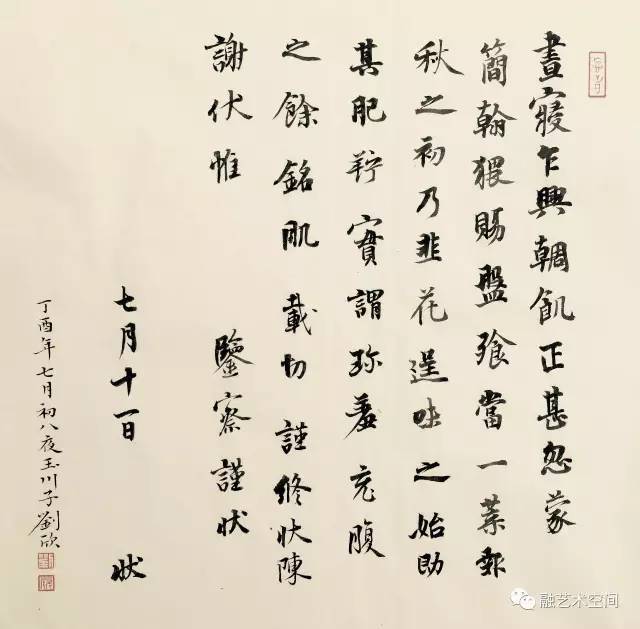 晝寢乍興輖飢正甚忽蒙
簡翰猥賜盤飧當一葉報
秋之初乃韭花逞味之始助
其肥羜實謂珍羞充腹
之餘銘肌載切謹修狀陳
謝伏惟 鑒察謹狀
七月十一日 狀
丁酉年七月初八夜玉川子劉欣
融艺术空间